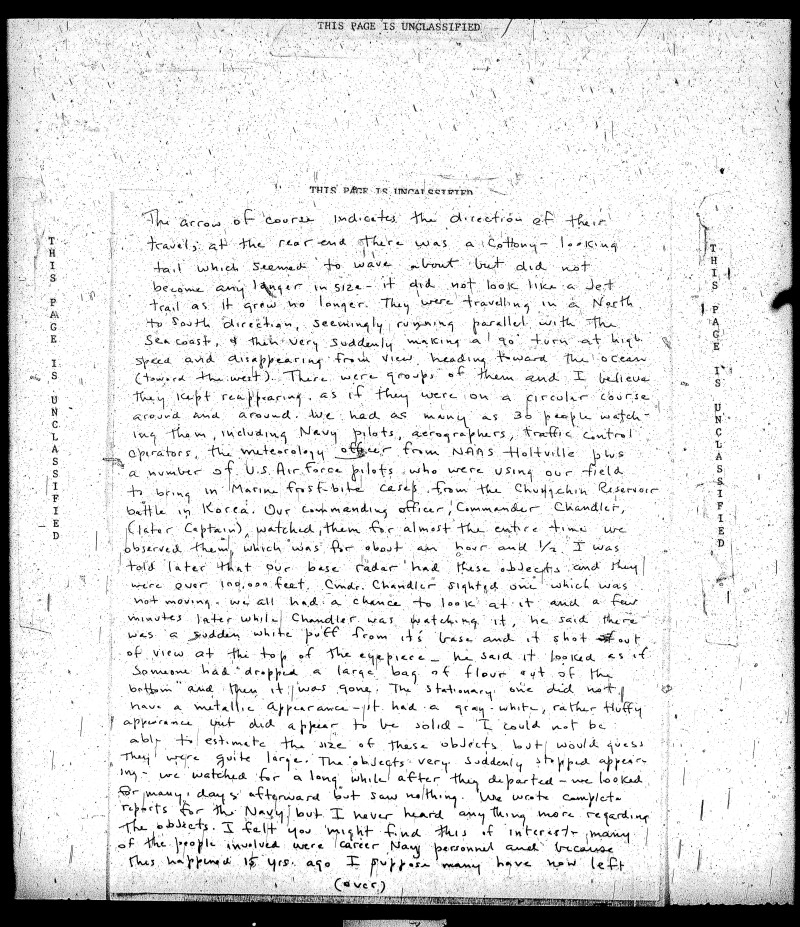 THIS PAGE IS UNCLASSIFIED
THIS PAGE IS UNCALSSIFIED
The arrow of course indicates the direction of their
travels at the rear end there was a Cottony-looking
tail which seemed to wave about but did not
become any longer in size - it did not look like a Jet
trail as it grew no longer. They were travelling in a North
to South direction, seemingly running parallel with the
Seacoast, & then very suddenly making a 90° turn at high
speed and disappearing from view, heading toward the ocean
(toward the west). There were groups of them and I believe
they kept reappearing, as if they were on a circular course
around and around. We had as many as 30 people watch-
ing them, including Navy pilots, aerographers, traffic control
operators, the meteorology officer from NAAS Holtville plus
a number of U.S. Air Force pilots who were using our field
to bring in Marine frost-bite cases from the Chungchin Reservoir
battle in Korea. Our commanding officer, Commander Chandler,
(later Captain), watched them for almost the entire time we
observed them, which was for about an hour and 1/2. I was
told later that our base radar had these objects and they
were over 100,000 feet. Cmdr. Chandler sighted one which was
not moving. we all had a chance to look at it and a few
minutes later while Chandler was watching it, he said there
was a sudden white puff from it's base and it shot out
of view at the top of the eyepiece - he said it looked as if
someone had "dropped a large bag of flour out of the
bottom" and then it was gone. The stationary one did not
have a metallic appearance - it had a gray-white, rather fluffy
appearance but did appear to be solid - I could not be
able to estimate the size of these objects but would guess
they were quite large. The objects very suddenly stopped appear-
ing - we watched for a long while after they departed - we looked
for many days afterward but saw nothing. We wrote complete
reports for the Navy but I never heard anything more regarding
the objects. I felt you might find this of interest - many
of the people involved were career Navy personnel and because
this happened 15 yrs. ago I suppose many have now left
(over)
THIS PAGE IS UNCLASSIFIED
THIS PAGE IS UNCLASSIFIED